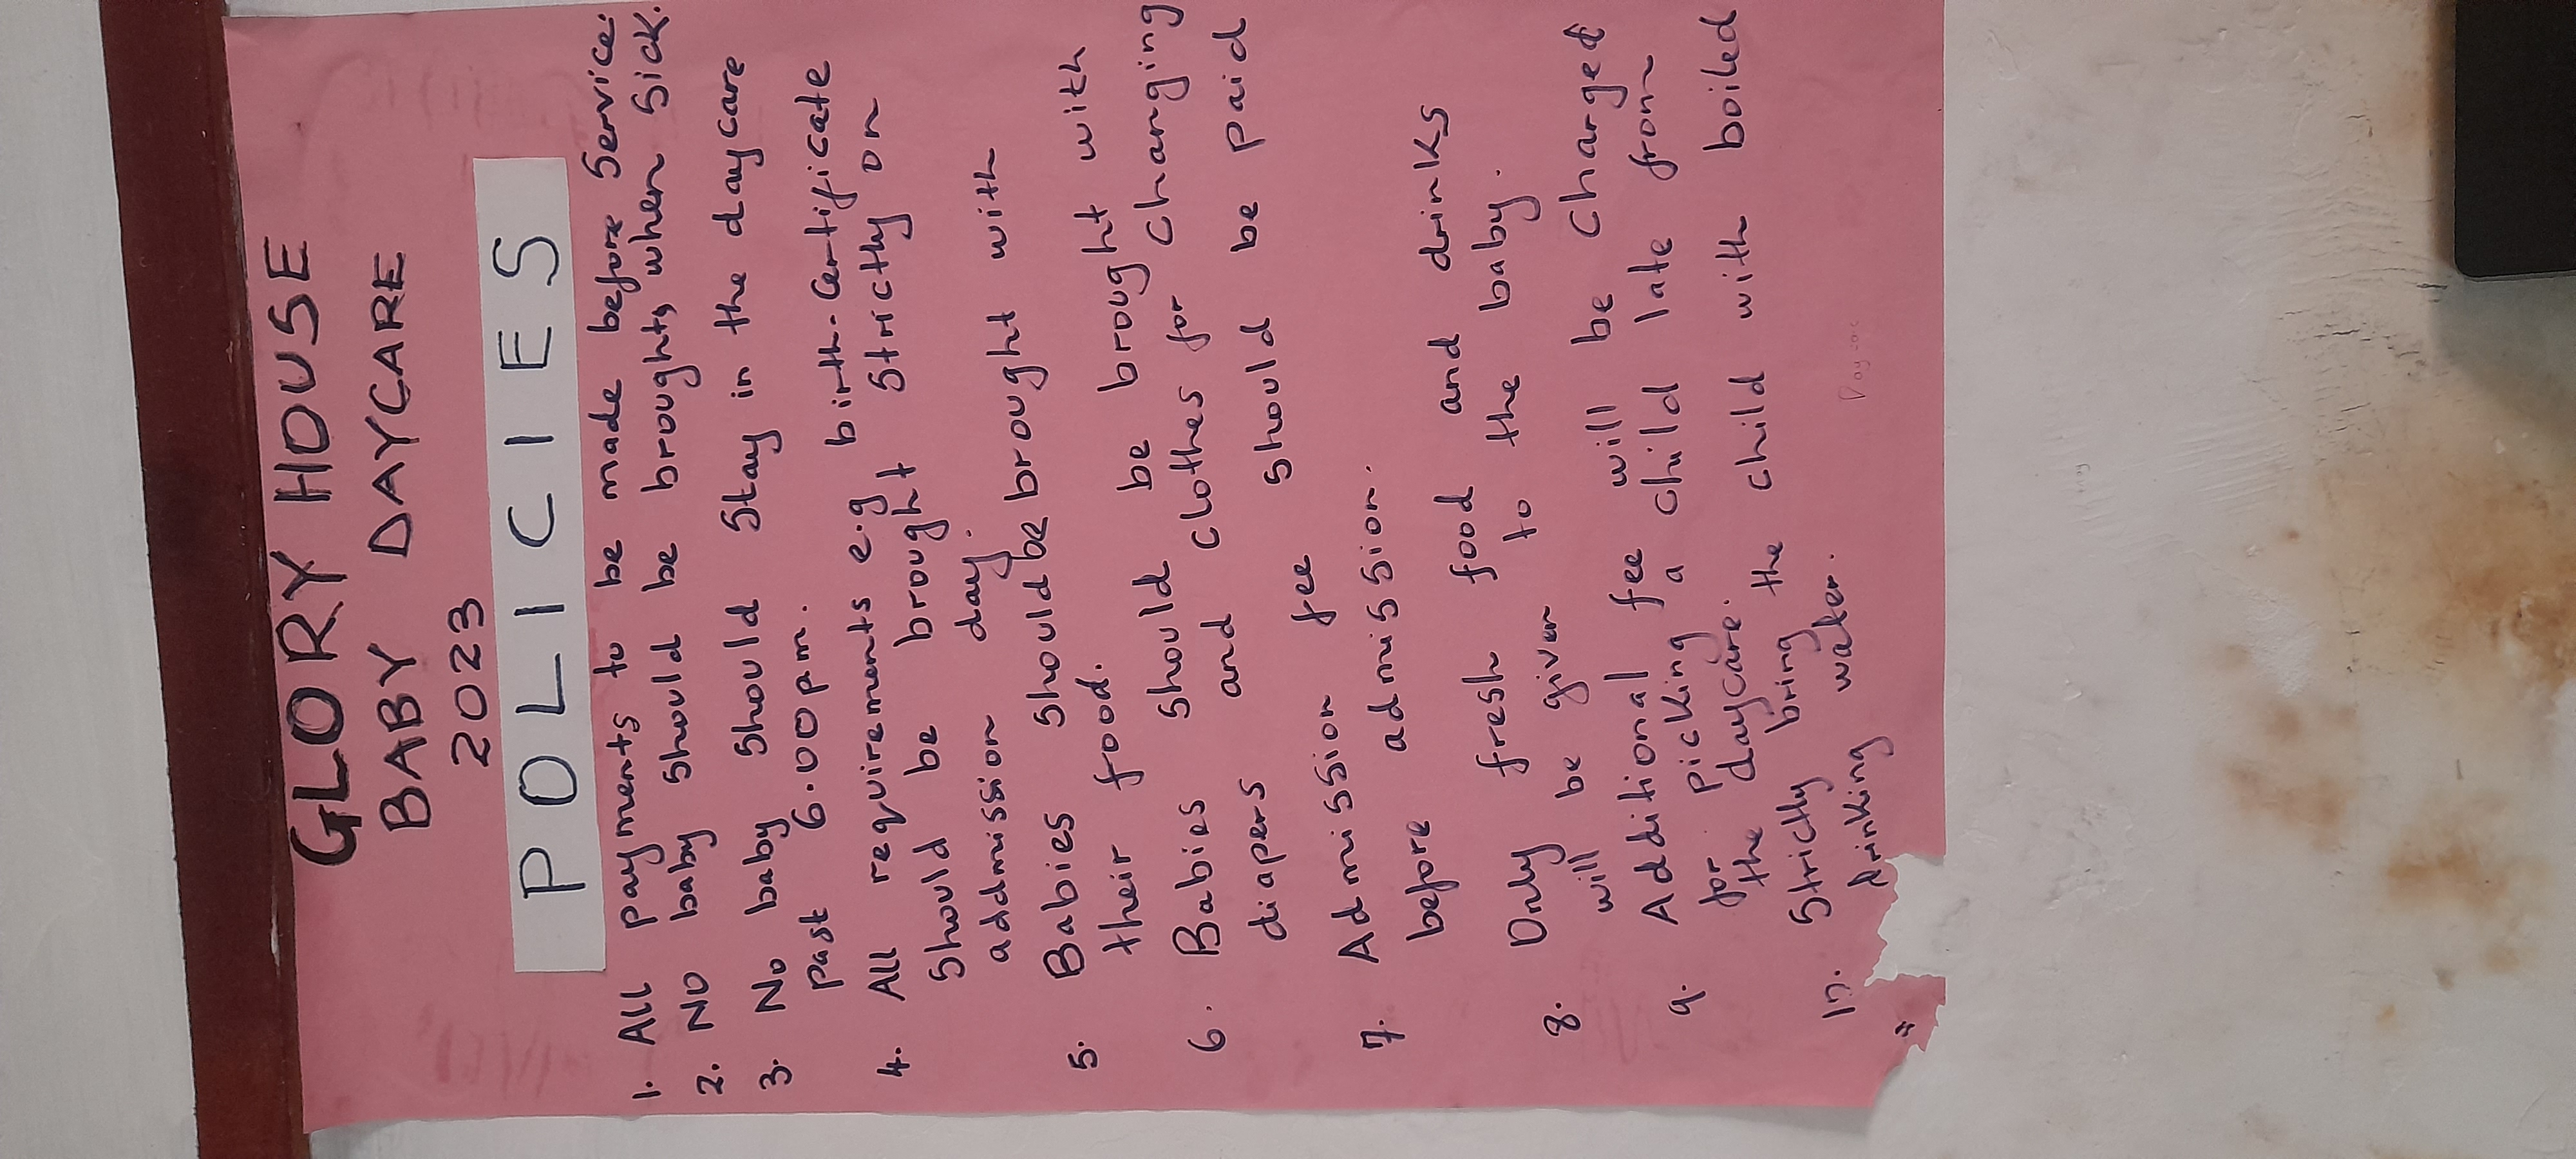 GLORY HOUSE
BABY DAYCARE
2023
POLICIES
1. All payments to be made before service.
2. NO baby should be brought, when sick.
3. No baby should stay in the daycare
past 6.00pm.
4. All requirements e.g birth-certificate
should be brought strictly on
admission day.
5. Babies should be brought with
their food.
6. Babies should be brought with
diapers and clothes for changing
7. Admission fee should be paid
before admission.
8. Only fresh food and drinks
will be given to the baby.
9. Additional fee will be charged
for picking a child late from
the daycare.
10. Strictly bring the child with boiled
drinking water.